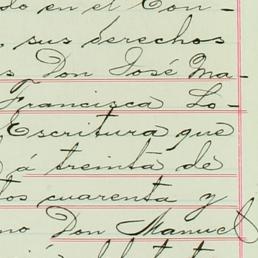 do en el Con-
, sus derechos
s Don José Ma-
Francisca Lo-
Escritura que
á treinta de
tos cuarenta y
no Don Manuel